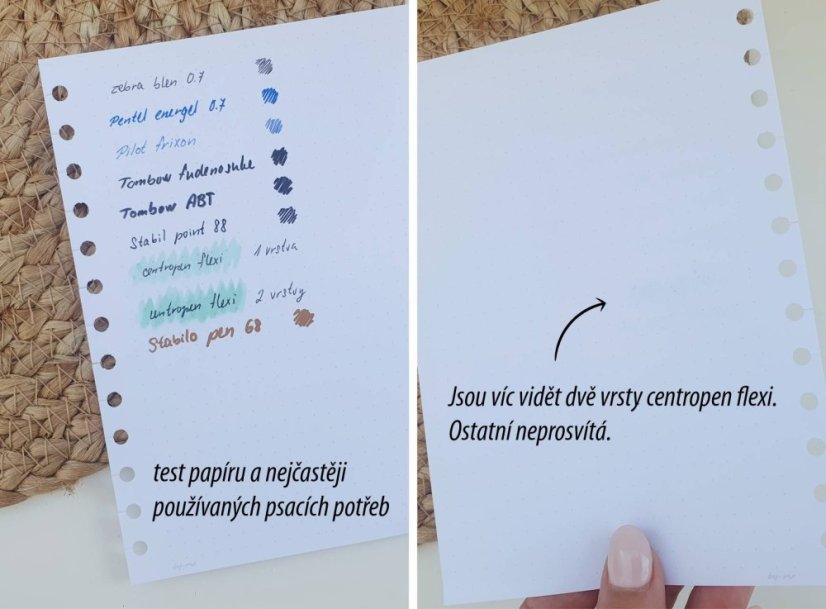 zebra blen 0.7
Pentel energel 0.7
Pilot frixon
Tombow fudenosuke
Tombow ABT
Stabil point 88
centropen flexi 1 vrstva
centropen flexi 2 vrstvy
Stabilo pen 68
test papíru a nejčastěji
používaných psacích potřeb
Jsou víc vidět dvě vrsty centropen flexi.
Ostatní neprosvítá.